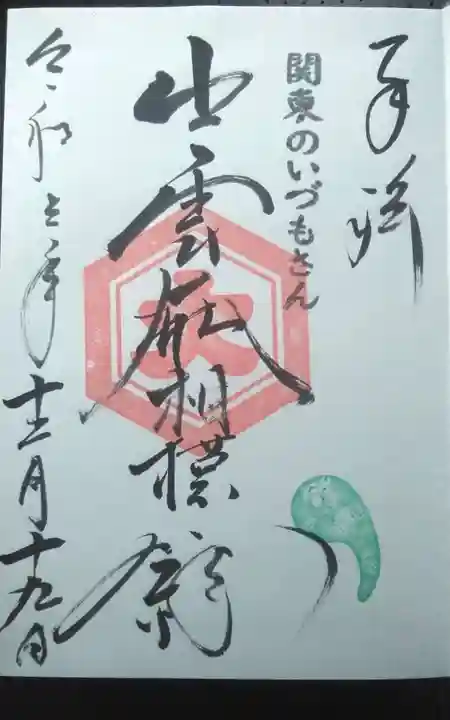 奉拝
関東のいづもさん
出雲大社相模分祠
大
令和 年十二月十九日